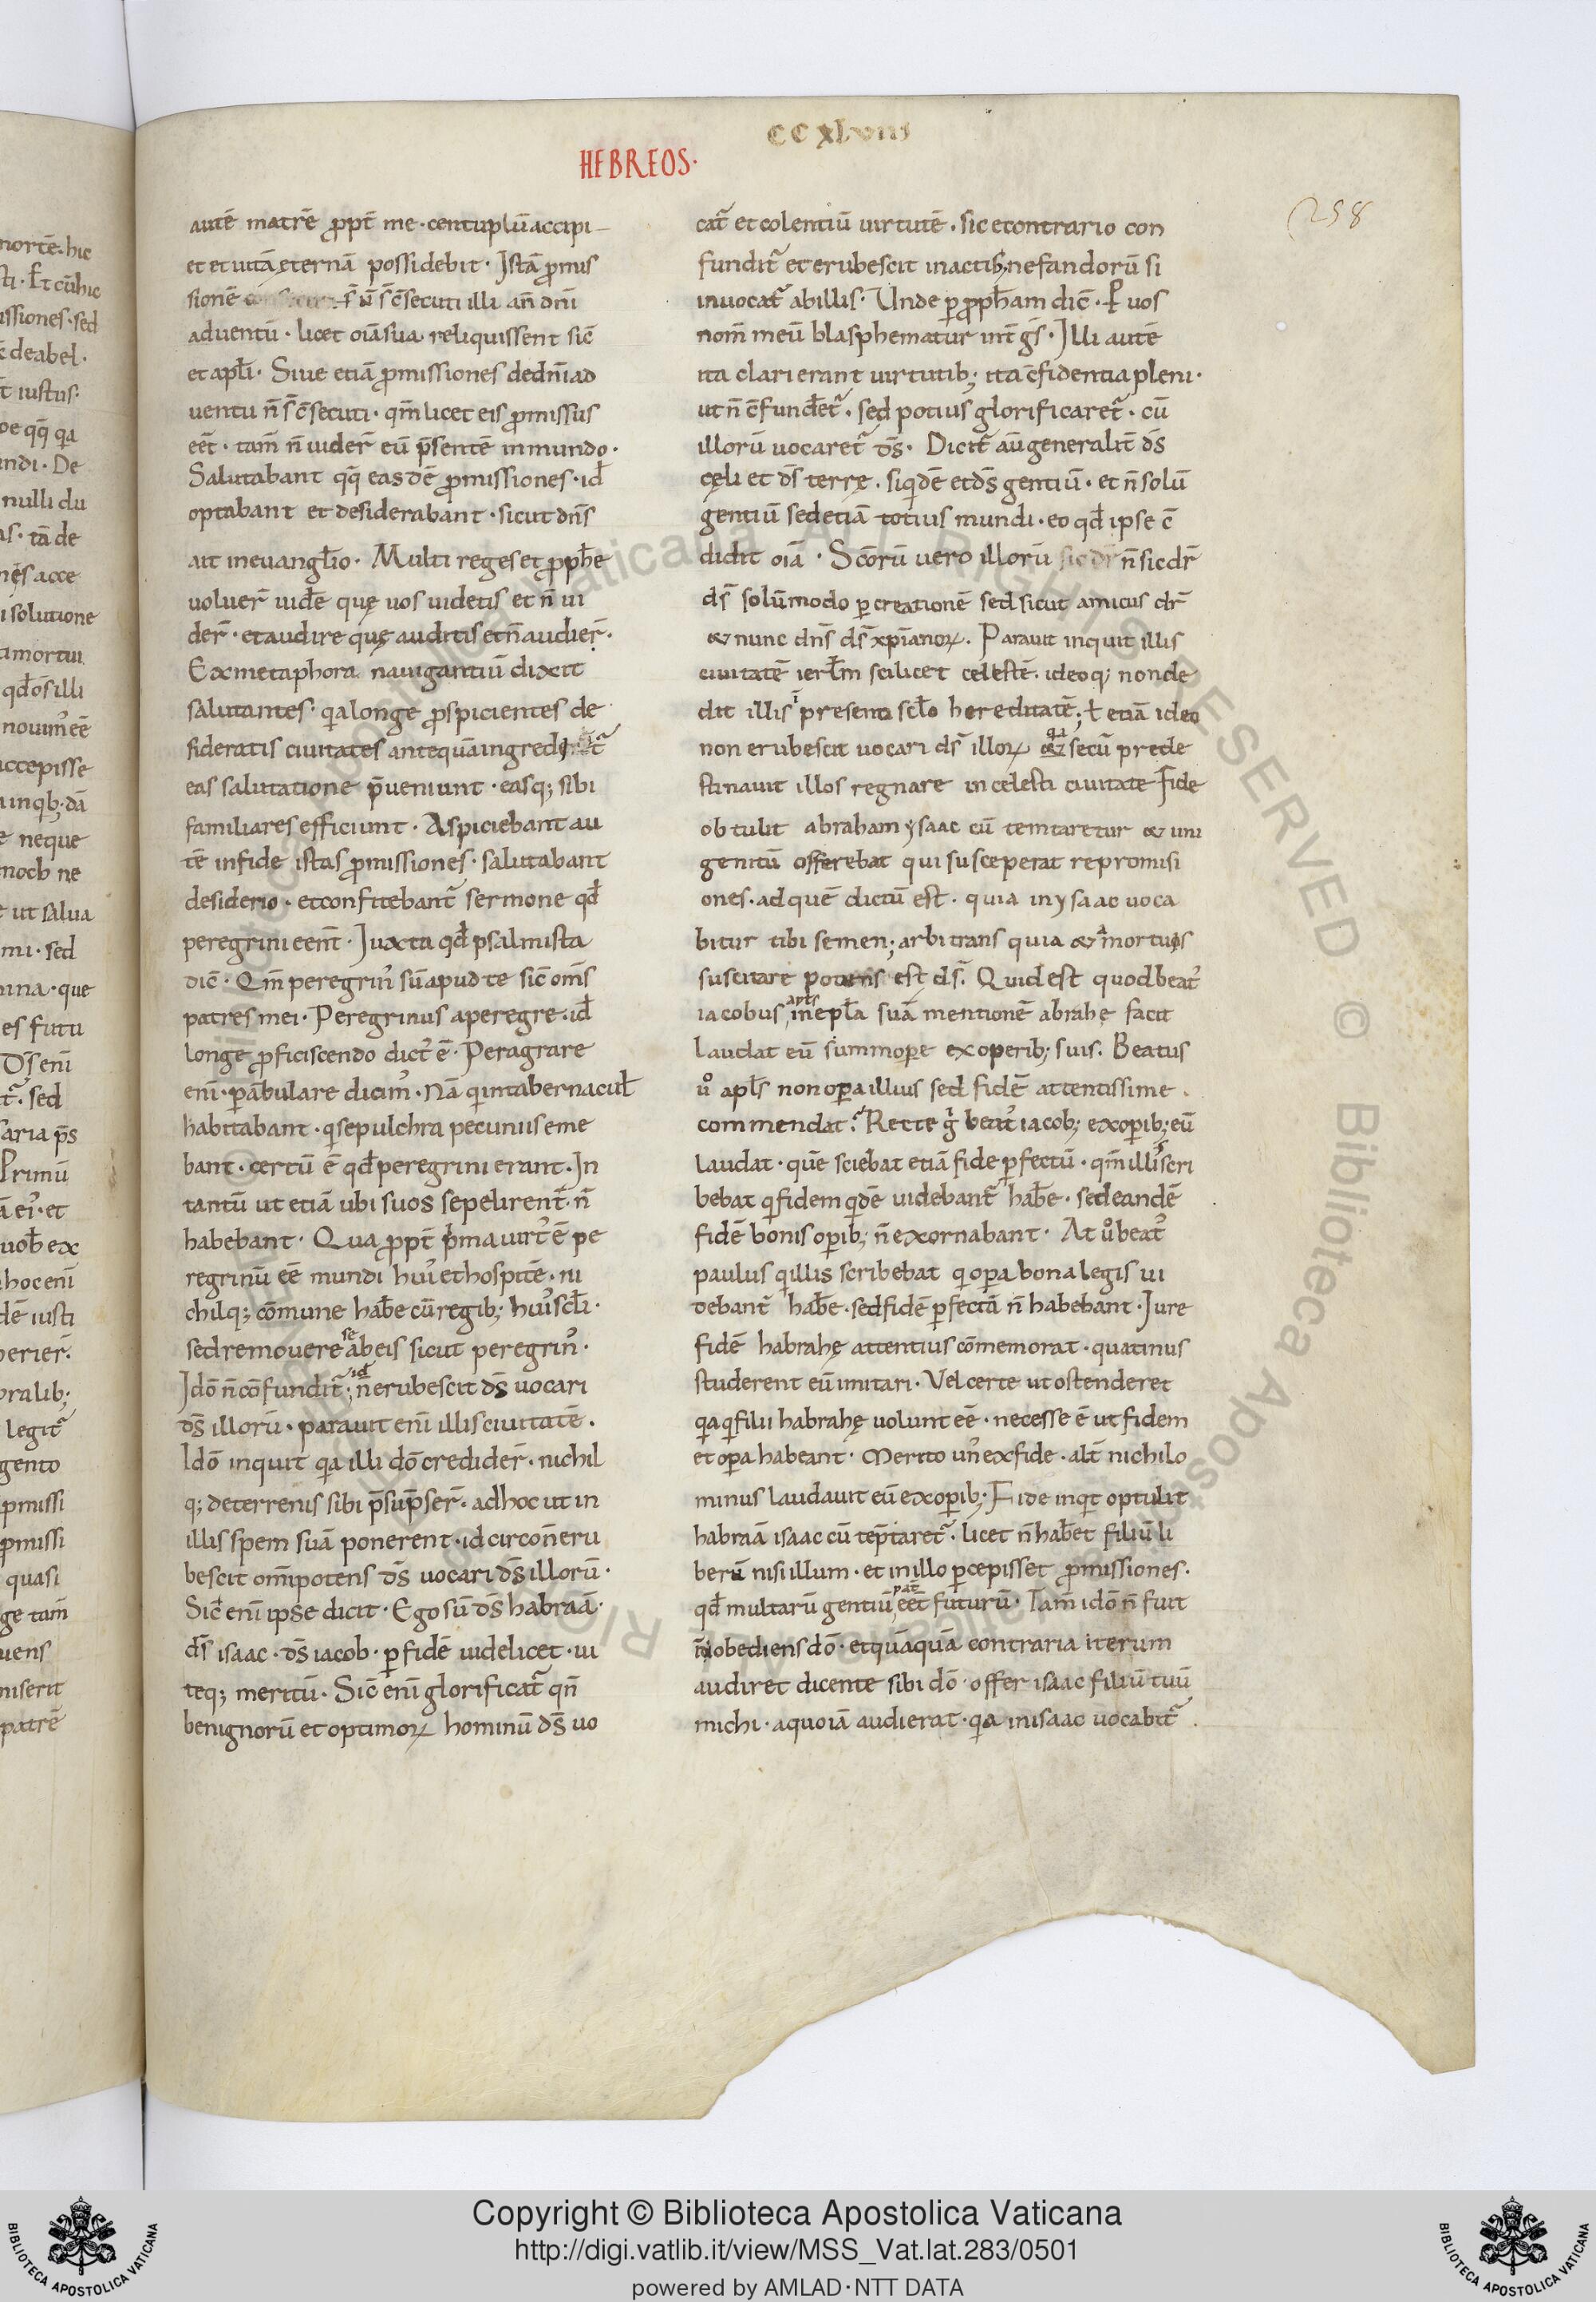 CCXLVIII
HEBREOS·
258
autē matrē ꝓpt̄ me · centuplū accipi
et et uitā ęternā possidebit · Istā ꝓmis
sionē n̄ s̄ c̄secuti illi an̄ dn̄i
aduentū · licet oīa sua reliquissent sic̄
et apl̄i · Siue etiā ꝓmissiones de dn̄i ad
uentu n̄ s̄ c̄secuti · qm̄ licet eis ꝓmissus
eēt · tam̄ n̄ uider̄ eū p̄sentē in mundo ·
Salutabant qq̄ eas dē ꝓmissiones · id̄
optabant et desiderabant · sicut dn̄s
ait in euangl̄io · Multi reges et ꝓph̄e
uoluer̄ uidē quę uos uidetis et n̄ ui
der̄ · et audire quę auditis et n̄ audier̄ ·
Ex metaphora nauigantiū dixit
salutantes · qa longe ꝓspicientes de
sideratis ciuitates antequā ingredi
eas salutatione p̄ueniunt · easq; sibi
familiares efficiunt · Aspiciebant au
tē in fide istas ꝓmissiones · salutabant
desiderio · et confitebant̄ sermone qd̄
peregrini eēnt · Iuxta qd̄ psalmista
dic̄ · Qm̄ peregrin᾽ sū apud te sic̄ om̄s
patres mei · Peregrinus a peregre · id̄
longe ꝓficiscendo dict᾽ ē · Peragrare
enī · ꝑābulare dicim᾽ · Nā qi in tabernacul̄
habitabant · qi sepulchra pecuniis eme
bant · certū ē qd̄ peregrini erant · In
tantū ut etiā ubi suos sepelirent̄ · n̄
habebant · Qua ꝓpt̄ p̄ma uirt᾽ ē pe
regrinū eē mundi hui᾽ et hospitē · ni
chilq; cōmune hab̄e cū regib; hui᾽ scl̄i ·
sed remouere se ab eis sicut peregrin᾽ ·
Idō n̄ cōfundit̄ · id̄ n̄ erubescit dš uocari
dš illorū · parauit enī illis ciuitatē ·
Idō inquit qa illi dō credider̄ · nichil
q; de terrenis sibi p̄sūpser̄ · ad hoc ut in
illis spem suā ponerent · idcirco n̄ eru
bescit om̄ipotens dš uocari dš illorū ·
Sic̄ enī ipse dicit · Ego sū dš habraā ·
dš isaac · dš iacob · ꝑ fidē uidelicet · ui
teq; meritū · Sic̄ enī glorificat̄ qn̄
benignorū et optimoꝝ hominū dš uo
cat̄ et colentiū uirtutē · sic e contrario con
fundit̄ et erubescit in actib; nefandorū si
inuocat̄ ab illis · Unde ꝑ ꝓph̄am dic̄ · P uos
nom̄ meū blasphematur int̄ gs̄ · Illi autē
ita clari erant uirtutib; ita c̄fidentia pleni ·
ut n̄ c̄funderet̄ · sed potius glorificaret̄ · cū
illorū uocaret̄ dš · Dicit̄ aū generalit̄ dš
cęli et dš terrę · siqidē et dš gentiū · et n̄ solū
gentiū sed etiā totius mundi · eo qd̄ ipse c̄
didit oīa · Scōrū uero illorū n̄ sic dr̄
dš solūmodo ꝑ creationē sed sicut amicus dr̄
& nunc dn̄s dš xp̄ianoꝝ. Parauit inquit illis
ciuitatē ierl̄m scilicet celestē. ideoq; non de
dit illis ī presenti scl̄o hereditatē; ł etiā ideo
non erubescit uocari dš illoꝝ qa secū prede
stinauit illos regnare in celesti ciuitate Fide
obtulit abraham ysaac cū temtaretur & uni
genitū offerebat qui susceperat repromissi
ones. ad quē dictū est. quia in ysaac uoca
bitur tibi semen; arbitrans quia & a mortuis
suscitare potens est dš. Quid est quod beat᾽
iacobus apl̄s in epl̄a suā mentionē abrahe facit
laudat eū summoꝑe ex operib; suis. Beatus
u᾽ apl̄s non oꝑa illius sed fidē attentissime ·
commendat? Recte g̊ beat᾽ iacob; ex oꝑib; eū
laudat · quē sciebat etiā fide ꝑfectū · qm̄ illis scri
bebat qi fidem qidē uidebant̄ hab̄e · sed eandē
fidē bonis oꝑib; n̄ exornabant · At u᾽ beat᾽
paulus qi illis scribebat qi oꝑa bona legis ui
debant̄ hab̄e · sed fidē ꝑfectā n̄ habebant · Iure
fidē habrahę attentius cōmemorat · quatinus
studerent eū imitari · Vel certe ut ostenderet
qa qi filii habrahę uolunt eē · necesse ē ut fidem
et oꝑa habeant · Merito un᾽ ex fide · alt̄ nichilo
minus laudauit eū ex oꝑib; · Fide inqit optulit
habraā isaac cū tēptaret̄ · licet n̄ hab̄et filiū li
berū nisi illum · et in illo ꝑcepisset ꝓmissiones ·
qd̄ multarū gentiū pat̄ eēt futurū · Tam̄ idō n̄ fuit
inobediens dō · et quāquā contraria iterum
audiret dicente sibi dō · offer isaac filiū tuū
michi · a quo iā audierat · qa in isaac uocabit̄ ·
Copyright © Biblioteca Apostolica Vaticana
http://digi.vatlib.it/view/MSS_Vat.lat.283/0501
powered by AMLAD·NTT DATA